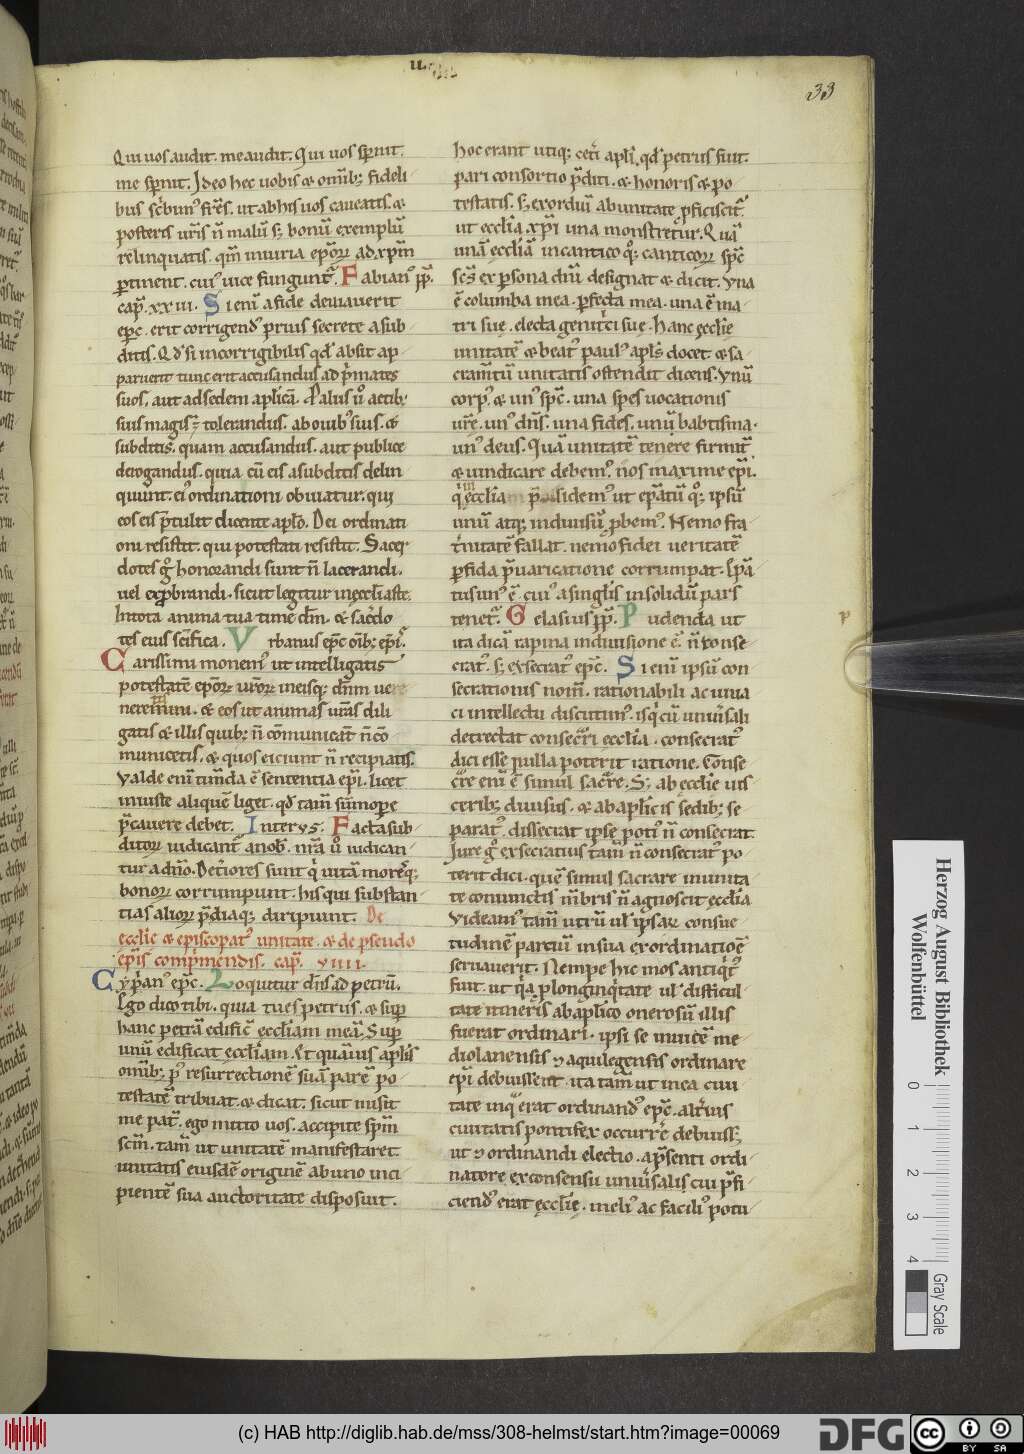 u.
33
Qui uos audit. me audit. Qui uos spnit.
me spnit. Ideo hec uobis & omib; fideli
bus scbim' frēs. ut ab his uos caueatis. &
posteris uris n̄ malū s; bonū exemplū
relinquatis. qm̄ iniuria epōꝝ ad xpm̄
ptinent. cui' uice fungunt᷑. Fabian' pp.
cap. xxiii. Si enī a fide deuiauerit
epc. erit corrigend' prius secrete a sub
ditis. Qd' si incorrigibilis qd' absit ap
paruerit tunc erit accusandus ad pmates
suos. aut ad sedem aplicā. P alus ů actib;
suis magis ÷ tolerandus. ab ouib' suis. &
subditis. quam accusandus. aut publice
derogandus. quia cū eis a subditis delin
quunt. ei' ordinationi obuiatur. qui
eos eis ptulit dicente aplō. Dei ordinati
oni resistit. qui potestati resistit. Sacer
dotes g° honorandi sunt n̄ lacerandi.
uel exprobrandi. sicut legitur in eccliaste.
In tota anima tua time dm̄. & sacdo
tes eius scifica. Vrbanus epc oīb; epi᷑.
Carissimi monem' ut intelligatis
potestatē epōꝝ uroꝝ in eisq; dn̄m ue
neremini. & eos ut animas uras dili
gatis & illis quib; n̄ cōmunicat n̄ cō
municetis. & quos eiciunt n̄ recipiatis.
Valde enī timda ē sententia epi. licet
iniuste aliquē liget. qd' tam̄ sūmope
pcauere debet. Inter ꝝs. Facta sub
ditoꝝ iudicant᷑ a nob᷑. nra ů iudican
tur a dn̄o. Deteriores sunt qi uitā moresq;
bonoꝝ corrumpunt. his qui substan
tias alioꝝ pdiaq; diripiunt. De
ecclie & episcopat' unitate. & de pseudo
epis compmendis. cap. viiii.
Cypian' epc. Loquitur dn̄s ad petrū.
Ego dico tibi. quia tu es petrus. & sup
hanc petrā edifico eccliam meā. Sup
unū edificat eccliam. Et quāuis aplis
omib; p' resurrectionē suā parē po
testatē tribuat. & dicat. sicut misit
me pat᷑. ego mitto uos. accipite spm̄
scm̄. tam̄ ut unitatē manifestaret
unitatis eiusdē originē ab uno inci
pientē sua auctoritate disposuit.
hoc erant utiq; ceti apli. qd' petrus fuit.
pari consortio pditi. & honoris & po
testatis. s; exordiū ab unitate pficiscit᷑
ut ecclia xpi una monstretur. Quā
unā eccliā in cantico q°; canticoꝝ spc
scs ex psona dn̄i designat & dicit. Vna
ē columba mea. pfecta mea. una ē ma
tri sue. electa genitci sue. Hanc ecclie
unitatē & beat' paul' apls docet. & sa
cram̄tū unitatis ostendit dicens. Vnū
corp' & un' spc. una spes uocationis
ure. un' dn̄s. una fides. unū babtisma.
un' deus. Quā unitatē tenere firmit᷑
& uindicare debem'. nos maxime epi.
qi in ecclia psidem' ut epatū q°; ipsū
unū atq; indiuisū pbem'. Nemo fra
tnitatē fallat. nemo fidei ueritatē
pfida puaricatione corrumpat. Epa
tus un' ē. cui' a singlis in solidū pars
tenet᷑. Gelasius pp. Pudenda ut
ita dicā rapina in diuisione ē. n̄ conse
crat᷑. s; exsecrat᷑ epc. Si enī ipsū con
secrationis nom̄. rationabili ac uiua
ci intellectu discutim'. is qi cū uniuersali
detrectat consecri ecclia. consecrat᷑
dici esse nulla poterit ratione. Conse
cre enī ē simul sacre. S; ab ecclie uis
cerib; diuisus. & ab aplicis sedib; se
parat᷑. dissecrat ipse poti' n̄ consecrat.
Jure g° exsecratus tam̄ n̄ consecrat᷑ po
terit dici. quē simul sacrare in unita
te coniunctis mbris n̄ agnoscit ecclia
Videam' tam̄ utrū ul' ipsaꝝ consue
tudinē partiū in sua exordinatioē
seruauerit. Nempe hic mos antiq't᷑
fuit. ut qia p longinqitate ul' difficul
tate itineris ab aplico onerosū illis
fuerat ordinari. ipsi se inuicē me
diolanensis & aquilegensis ordinare
epi debuissent. ita tam̄ ut in ea ciui
tate in q erat ordinand' epc. altius
ciuitatis pontifex occurre debuiss;
ut & ordinandi electio. a psenti ordi
natore ex consensu uniuersalis cui pfi
ciend' erat ecclie. meli' ac facili' potu
p
Herzog August Bibliothek
Wolfenbüttel
0
1
2
3
4
Gray Scale
(c) HAB http://diglib.hab.de/mss/308-helmst/start.htm?image=00069
DFG
cc
BY
SA